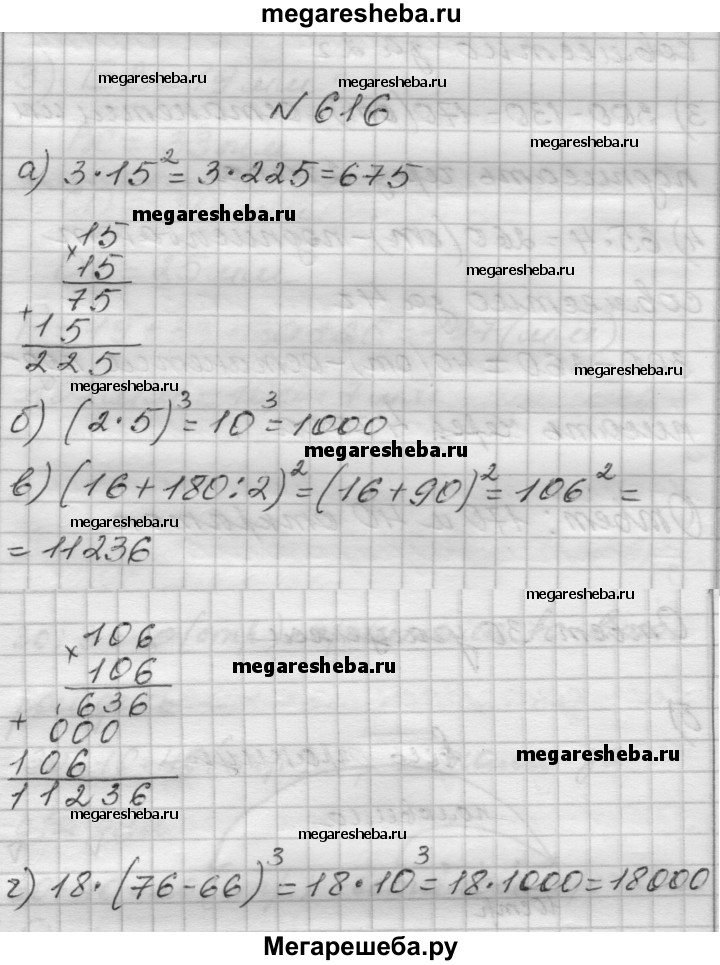 megaresheba.ru
megaresheba.ru
megaresheba.ru
№ 616
megaresheba.ru
а) 3·15² = 3·225 = 675
megaresheba.ru
× 15
15
megaresheba.ru
75
+ 15
225
megaresheba.ru
megaresheba.ru
б) (2·5)³ = 10³ = 1000
megaresheba.ru
в) (16+180:2)² = (16+90)² = 106² =
megaresheba.ru
= 11236
megaresheba.ru
× 106
106
megaresheba.ru
636
+ 000
106
megaresheba.ru
11236
megaresheba.ru
megaresheba.ru
г) 18·(76-66)³ = 18·10³ = 18·1000 = 18000
Мегарешеба.ру